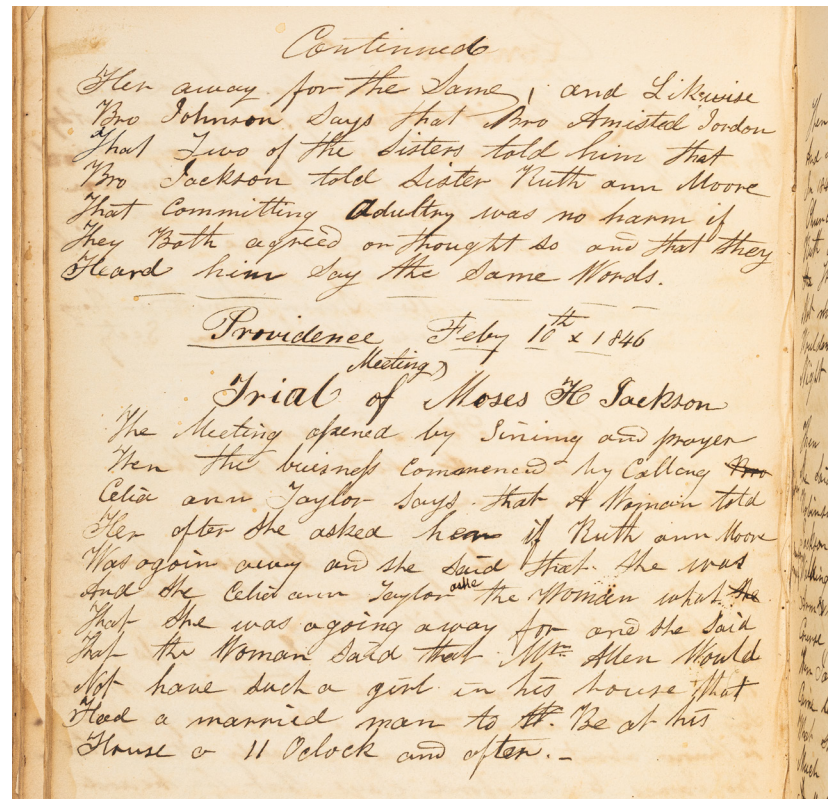 Continued
Her away for the Same, and Likewise
Bro Johnson Says that Bro Amisted Jordon
That Two of the Sisters told him that
Bro Jackson told Sister Ruth ann Moore
That Committing Adultry was no harm if
They Both agreed or thought so and that they
Heard him Say the Same Words.
Providence Feby 10th x 1846
Meeting
Trial of Moses H Jackson
The Meeting opened by Sining and prayer
Then the buisness Commenced by Calling Bro
Celia ann Taylor says that A Woman told
Her after She asked her if Ruth ann Moore
Was agoin away and she said that She was
And She Celia ann Taylor aske the Woman what the
That She was agoing away for and she Said
That the Woman Said that Mrs Allen Would
Not have such a girl in his house that
Had a married man to Be at his
House 11 Oclock and after.